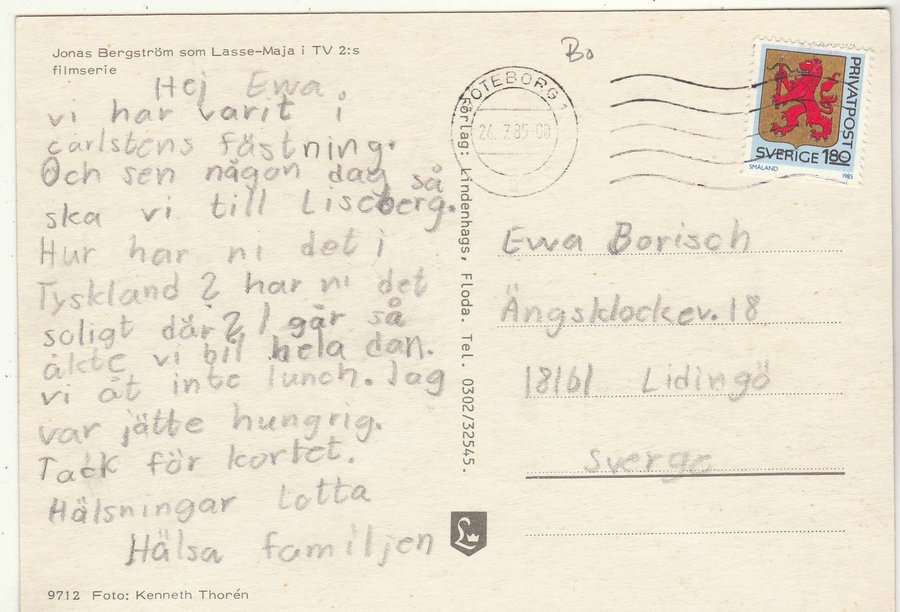 Jonas Bergström som Lasse-Maja i TV 2:s
filmserie
Hej Ewa.
vi har varit i
carlstens fästning.
Och sen någon dag så
ska vi till Liseberg.
Hur har ni det i
Tyskland? har ni det
soligt där? I går så
åkte vi bil hela dan.
vi åt inte lunch. Jag
var jätte hungrig.
Tack för kortet.
Hälsningar Lotta
Hälsa familjen
9712 Foto: Kenneth Thorén
Förlag: Lindenhags, Floda. Tel. 0302/32545.
Bo
GÖTEBORG 1
24.7.85-00
PRIVATPOST
SVERIGE 180
SMÅLAND
1985
Ewa Borisch
Ängsklockev. 18
18161 Lidingö
Sverge
L